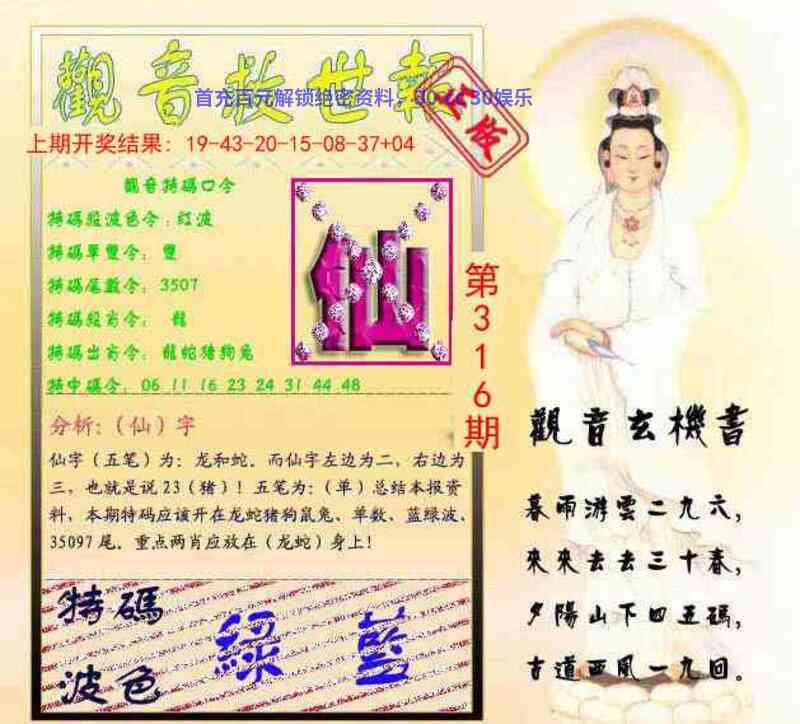 觀音救世報
首充百元解锁绝密资料,
30娱乐
上期开奖结果：19-43-20-15-08-37+04
觀音特碼口令
特碼短波色令：红波
特碼單雙令：雙
特碼尾數令：3507
特碼短肖令： 龍
特碼出肖令：龍蛇猪狗兔
特中碼令：06 11 16 23 24 31 44 48
仙
第316期
分析：（仙）字
仙字（五笔）为：龙和蛇．而仙字左边为二，右边为
三，也就是说23（猪）！五笔为：（单）总结本报资
料，本期特码应该开在龙蛇猪狗鼠兔、单数、蓝绿波、
35097尾．重点两肖应放在（龙蛇）身上！
特碼
波色
綠 藍
觀音玄機書
暮雨游雲二九六，
來來去去三十春，
夕陽山下四五碼，
古道西風一九回。